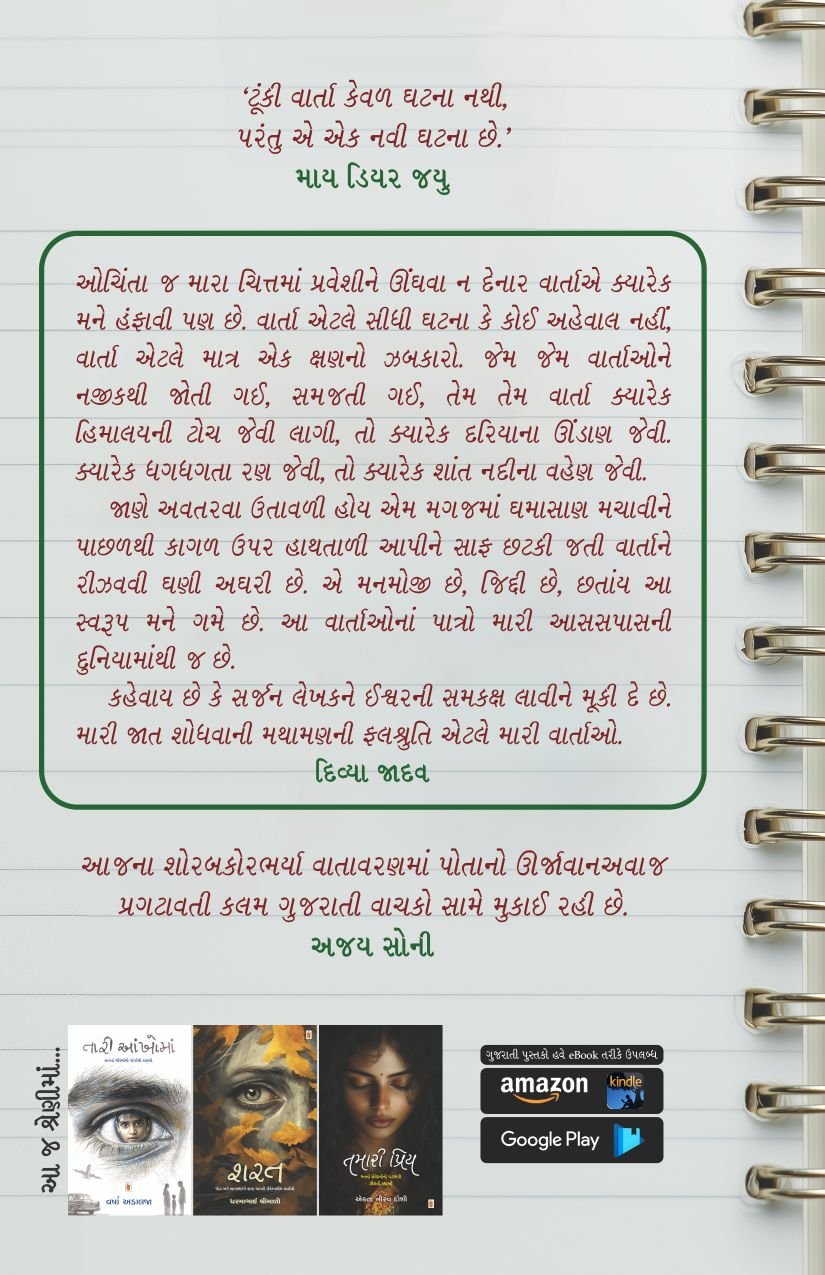 ‘ટૂંકી વાર્તા કેવળ ઘટના નથી,
પરંતુ એ એક નવી ઘટના છે.’
માય ડિયર જયુ
ઓચિંતા જ મારા ચિત્તમાં પ્રવેશીને ઊંઘવા ન દેનાર વાર્તાએ ક્યારેક
મને હંફાવી પણ છે. વાર્તા એટલે સીધી ઘટના કે કોઈ અહેવાલ નહીં,
વાર્તા એટલે માત્ર એક ક્ષણનો ઝબકારો. જેમ જેમ વાર્તાઓને
નજીકથી જોતી ગઈ, સમજતી ગઈ, તેમ તેમ વાર્તા ક્યારેક
હિમાલયની ટોચ જેવી લાગી, તો ક્યારેક દરિયાના ઊંડાણ જેવી.
ક્યારેક ધગધગતા રણ જેવી, તો ક્યારેક શાંત નદીના વહેણ જેવી.
જાણે અવતરવા ઉતાવળી હોય એમ મગજમાં ઘમાસાણ મચાવીને
પાછળથી કાગળ ઉપર હાથતાળી આપીને સાફ છટકી જતી વાર્તાને
રીઝવવી ઘણી અઘરી છે. એ મનમોજી છે, જિદ્દી છે, છતાંય આ
સ્વરૂપ મને ગમે છે. આ વાર્તાઓનાં પાત્રો મારી આસસપાસની
દુનિયામાંથી જ છે.
કહેવાય છે કે સર્જન લેખકને ઈશ્વરની સમકક્ષ લાવીને મૂકી દે છે.
મારી જાત શોધવાની મથામણની ફલશ્રુતિ એટલે મારી વાર્તાઓ.
દિવ્યા જાદવ
આજના શોરબકોરભર્યા વાતાવરણમાં પોતાનો ઊર્જાવાનઅવાજ
પ્રગટાવતી કલમ ગુજરાતી વાચકો સામે મુકાઈ રહી છે.
અજય સોની
આ જ શ્રેણીમાં...
તારી આંખોમાં
વર્ષા અડાલજા
શરત
ધરમાભાઈ શ્રીમાળી
તમારી પ્રિય
એકતા નીરવ દોશી
ગુજરાતી પુસ્તકો હવે eBook તરીકે ઉપલબ્ધ
amazon kindle
Google Play